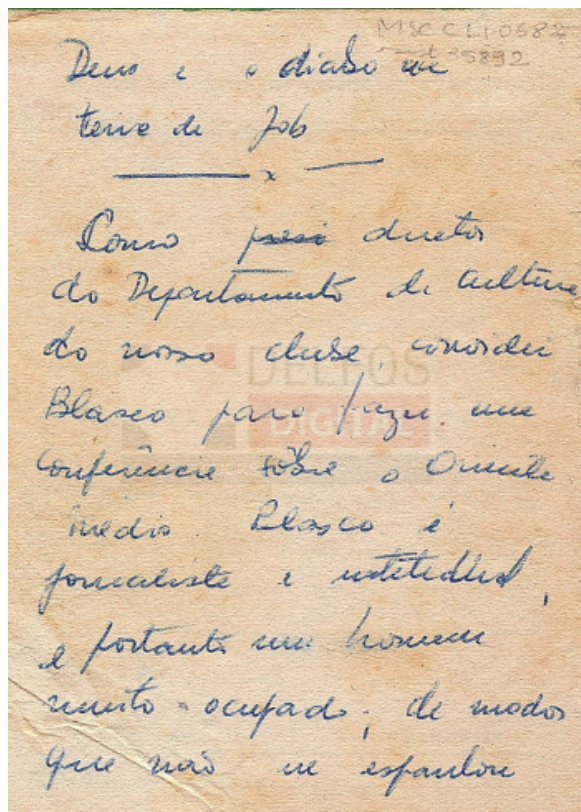 MSC CLI 0682
35892
Deus e o diabo na
terra de Job
x
Como presi diretor
do Departamento de Cultura
do nosso clube, convidei
Blasco para fazer uma
conferência sôbre o Oriente
Médio. Blasco é
jornalista e intelectual,
e portanto um homem
muito ocupado; de modos
que não me espantou
DELFOS
DIGITAL